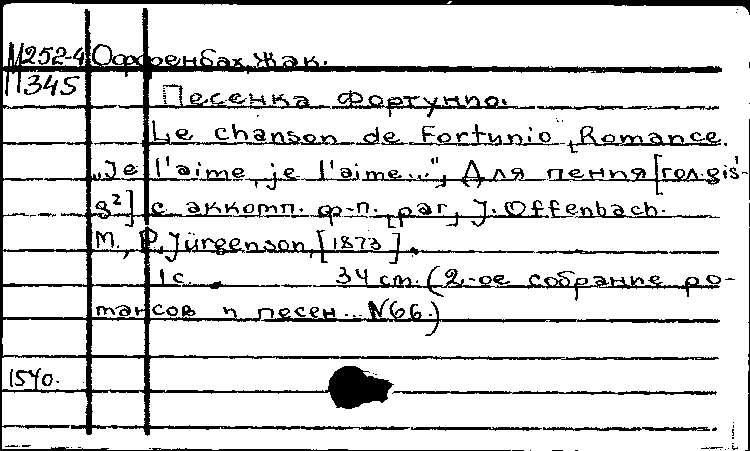 М252-4 Оффенбах, Жак.
П345
Песенка Фортунио.
Le chanson de Fortunio, Romance.
„Je l'aime, je l'aime...", Для пения [гол. gis'-
g²] с аккомп. ф-п., par, J. Offenbach.
М., P. Jürgenson, [1873].
1 с. 34 cm. (2-ое собрание ро-
мансов и песен... N66.)
1540.